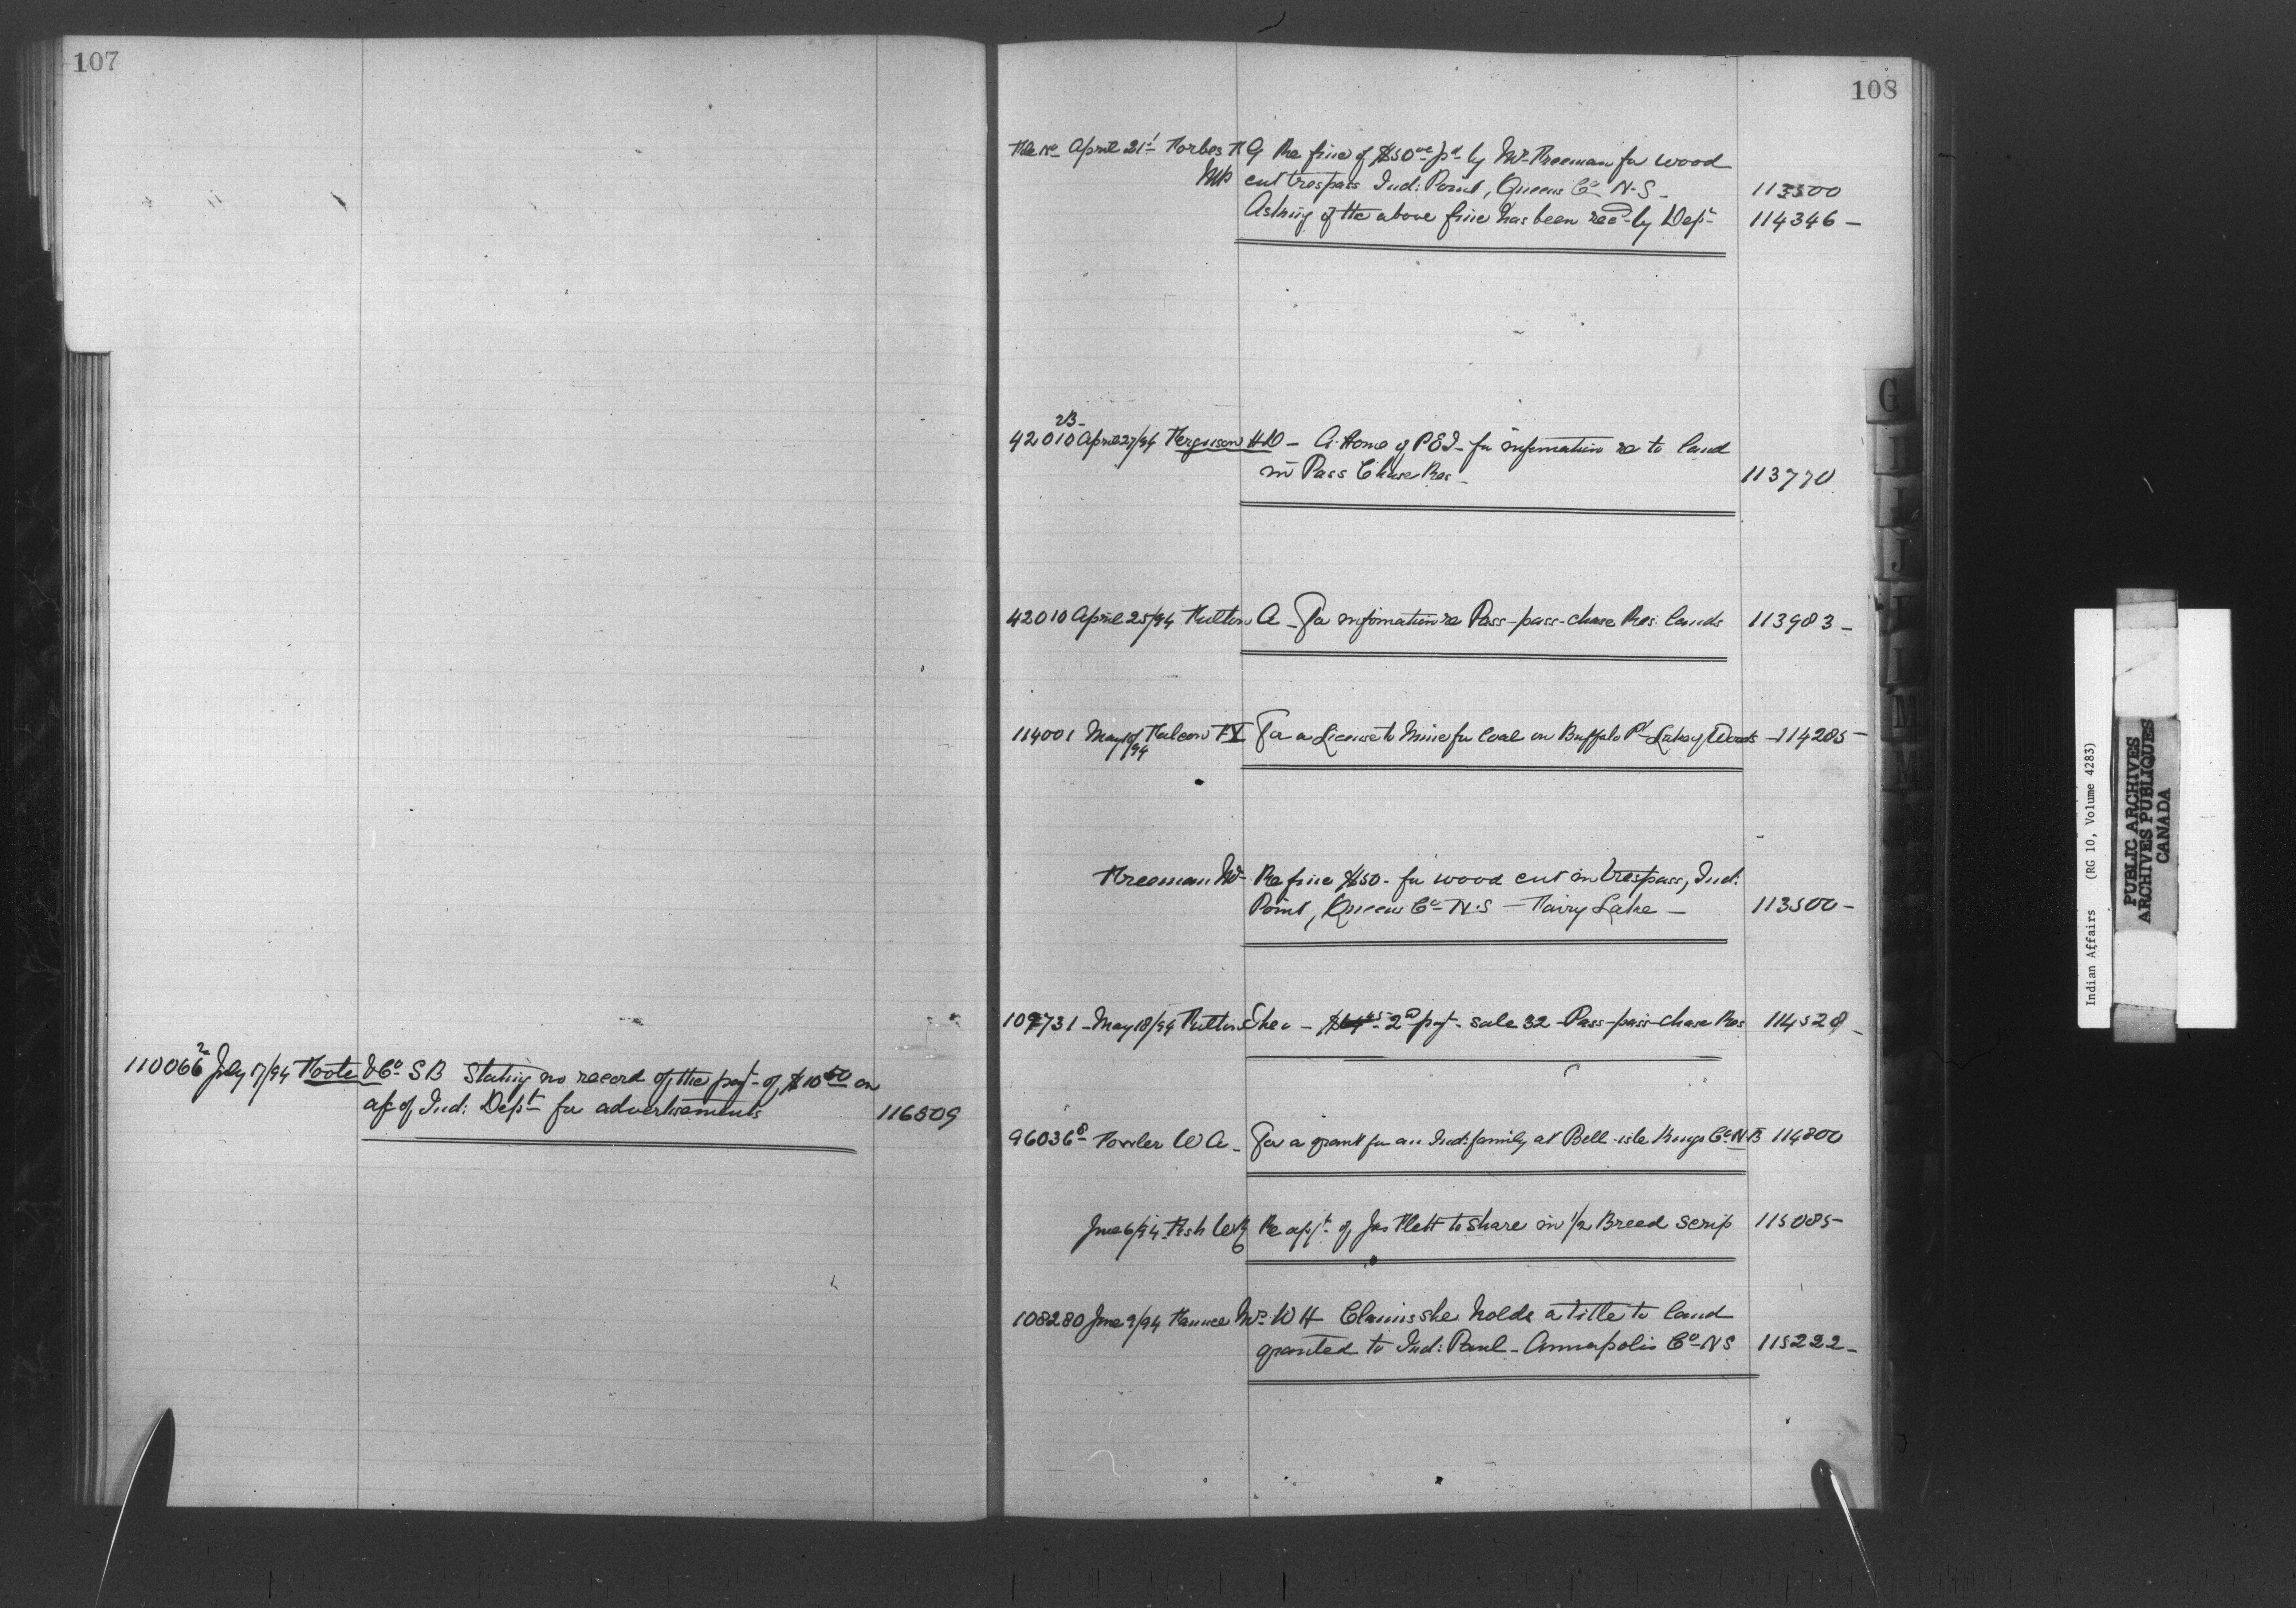 107
110066² July 17/94 Foote & Co S B Stating no record of the payt of $10.50 on
a/c of Ind: Dept for advertisements 116809
108
File No April 21st Forbes F G Re fine of $50.00 pd by Mr Freeman for wood
MP cut trespass Ind: Point, Queens Co N.S. 113500
Asking if the above fine has been recd by Dept 114346 -
42010 April 27/94 Ferguson H D - A Home of P E I - for information re to land
in Pass Chase Res - 113770
42010 April 25/94 Fulton A - For information re Pass-pass-chase Res: lands 113983 -
114001 May 1st/94 Falcon F X For a License to Mine for Coal on Buffalo Pd Lake of Woods - 114285 -
Freeman Mr Re fine $50. for wood cut in trespass, Ind:
Point, Queens Co N.S - Fairy Lake - 113500 -
109731 - May 18/94 Fulton 2nd payt - sale 32 - Pass-pass-chase Res 114528 -
96036⁸ Fowler W A - For a grant for an Ind: family at Bell-isle Kings Co N B 114800
June 6/94 Fish W R Re appt of Jas Flett to share in 1/2 Breed scrip 115085 -
108280 June 9/94 Fannce Mrs W H Claims she holds a title to land
granted to Ind: Paul - Annapolis Co N S 115222 -
G
I
J
L
M
Indian Affairs (RG 10, Volume 4283)
PUBLIC ARCHIVES
ARCHIVES PUBLIQUES
CANADA